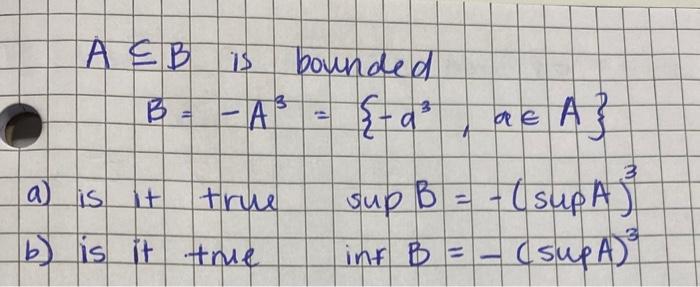 A ⊆ B is bounded
B = -A³ = {-a³, a ∈ A}
a) is it true sup B = -(sup A)³
b) is it true inf B = -(sup A)³